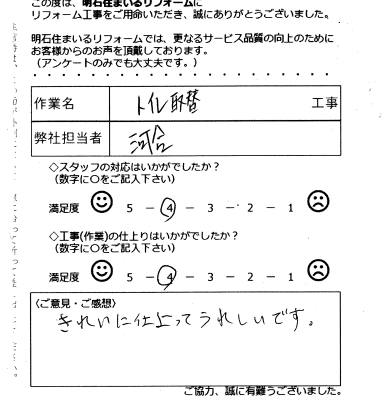 この度は、明石住まいるリフォームに
リフォーム工事をご用命いただき、誠にありがとうございました。
明石住まいるリフォームでは、更なるサービス品質の向上のために
お客様からのお声を頂戴しております。
（アンケートのみでも大丈夫です。）
作業名 トイレ取替 工事
弊社担当者 河合
◇スタッフの対応はいかがでしたか？
（数字に○をご記入下さい）
満足度 5 － 4 － 3 － 2 － 1
◇工事(作業)の仕上りはいかがでしたか？
（数字に○をご記入下さい）
満足度 5 － 4 － 3 － 2 － 1
〈ご意見・ご感想〉
きれいに仕上ってうれしいです。
ご協力、誠に有難うございました。